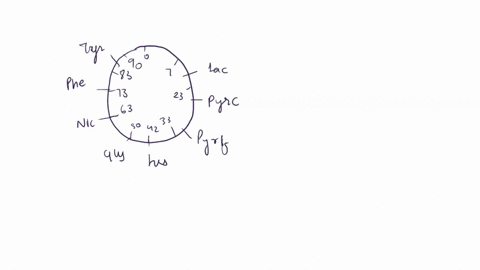 Tyr
0
90
7
lac
83
Phe
73
23
PyrC
63
Nic
33
50
42
Pyrf
gly
his